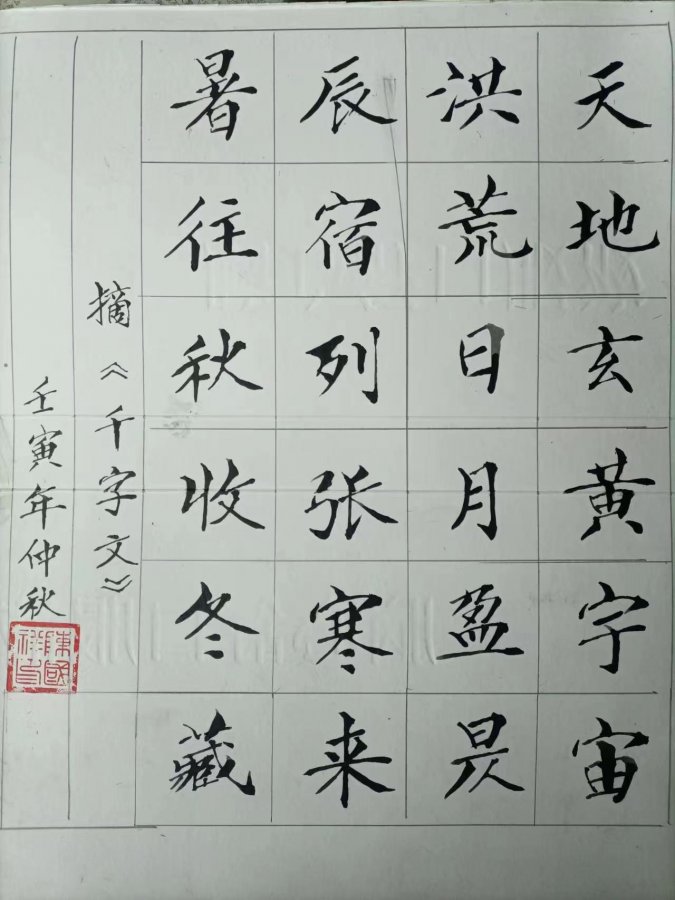 天地玄黄宇宙
洪荒日月盈昃
辰宿列张寒来
暑往秋收冬藏
摘《千字文》
壬寅年仲秋
陳國祥印